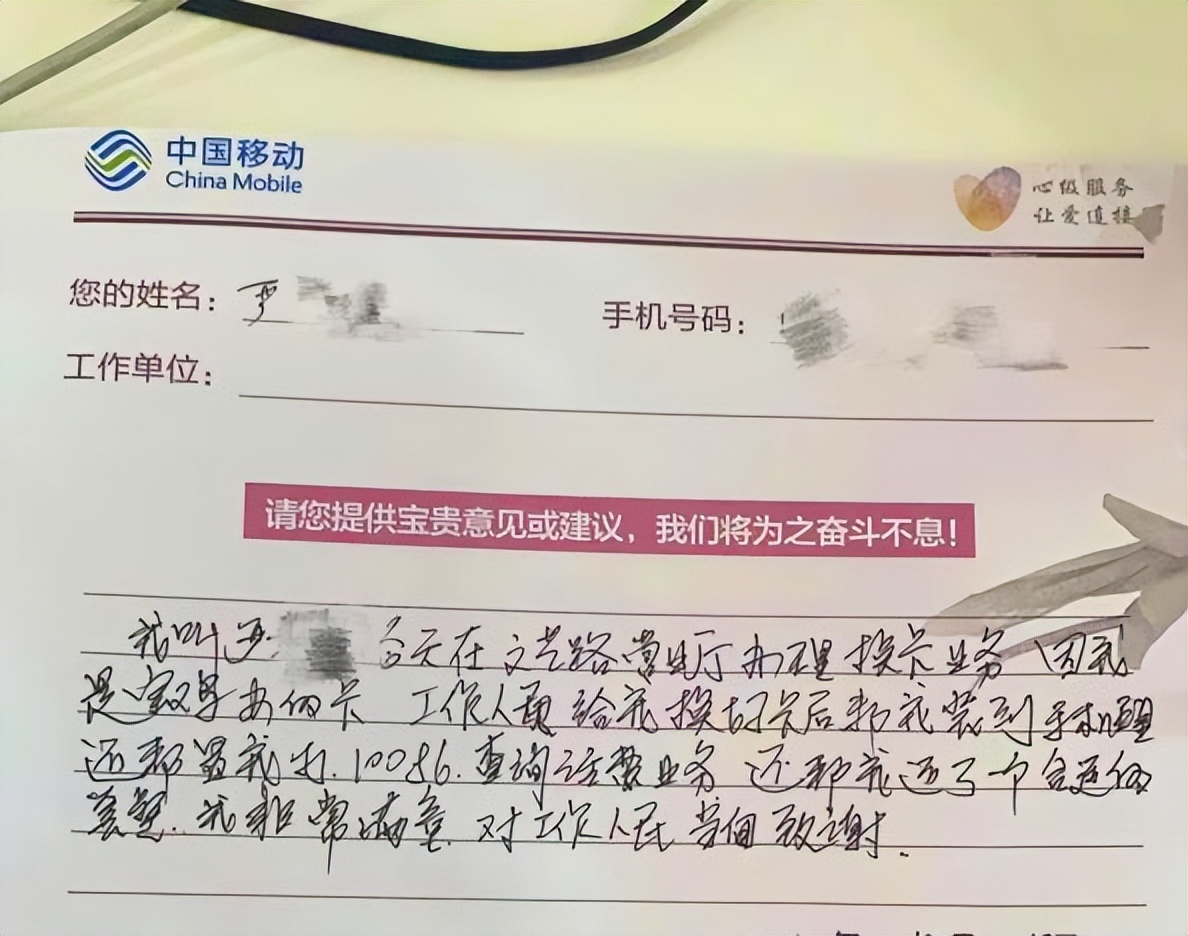 中国移动
China Mobile
心级服务
让爱连接
您的姓名:
手机号码:
工作单位:
请您提供宝贵意见或建议,我们将为之奋斗不息!
我叫 今天在文艺路营业厅办理换卡业务 因我
是 办的卡 工作人员给我换好卡后帮我装到手机里
还帮 我打.10086.查询话费业务 还帮我选了一个合适的
套餐.我非常满意.对工作人员 致谢.